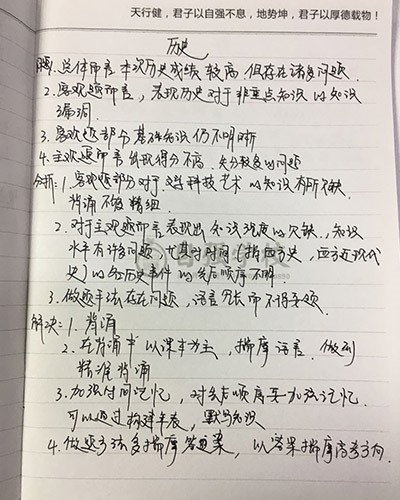 天行健，君子以自强不息，地势坤，君子以厚德载物！
历史
问题：1.总体而言 本次历史成绩 较高 但存在诸多问题.
2.客观题而言，表现历史对于非重点知识的知识
漏洞.
3.客观题部分基础知识仍不明晰
4.主观题而言 得分不高. 失分较多的问题
分析：1.客观题部分对于 科技艺术 的知识有所欠缺.
背诵不够精细.
2.对于主观题而言 表现出 知识强度的欠缺、知识
水平有许多问题 尤其时间（指西历史，西方近现代
史）的各历史事件的先后顺序不明
3.做题手法存在问题，语言冗长而不得要领.
解决：1.背诵
2.在背诵中 以课本为主，揣摩语言. 做到
精准背诵
3.加强时间记忆，对先后顺序要加强记忆.
可以通过构建年表，默写知识
4.做题方法多揣摩答题案，以答案揣摩高考方向.
学校